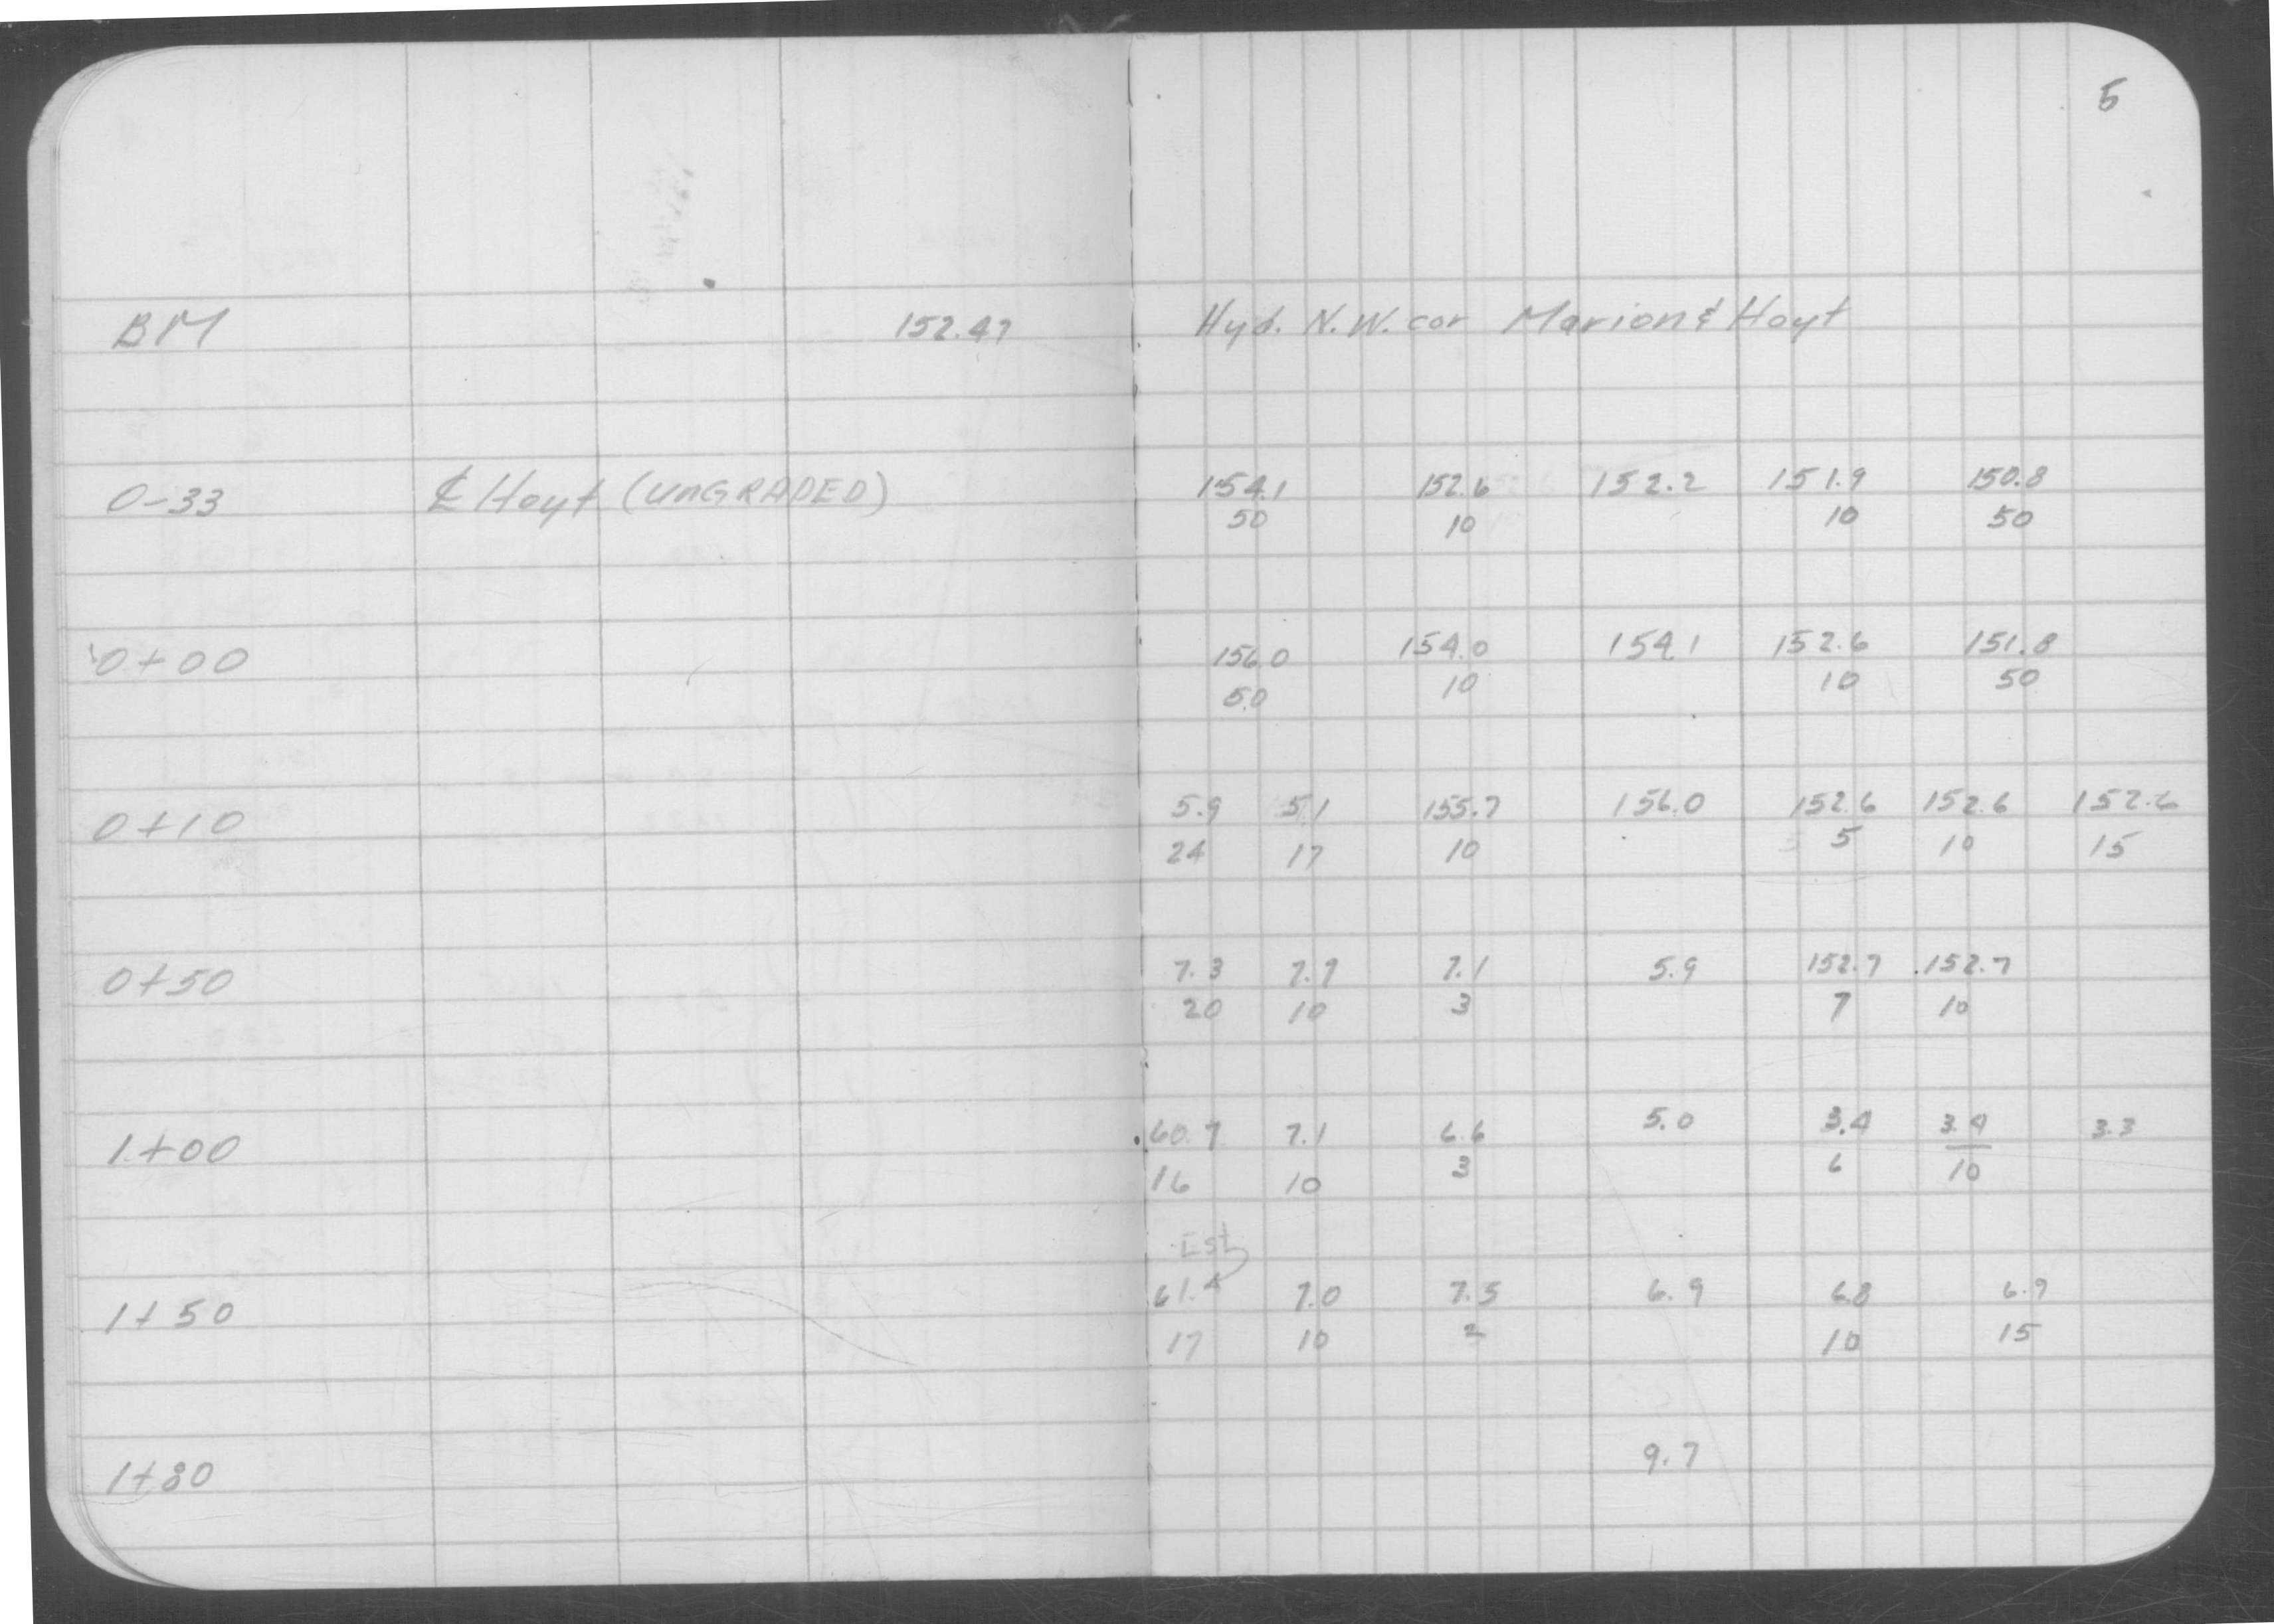 5
BM 152.47 Hyd. N.W. cor Marion & Hoyt
0-33 ℄ Hoyt (UnGRADED) 154.1 152.6 152.2 151.9 150.8
50 10 10 50
0+00 156.0 154.0 154.1 152.6 151.8
50 10 10 50
0+10 5.9 5.1 155.7 156.0 152.6 152.6 152.6
24 17 10 5 10 15
0+50 7.3 7.9 7.1 5.9 152.7 152.7
20 10 3 7 10
1+00 60.7 7.1 6.6 5.0 3.4 3.4 3.3
16 10 3 6 10
Est
1+50 61.4 7.0 7.5 6.9 6.8 6.9
17 10 2 10 15
1+80 9.7